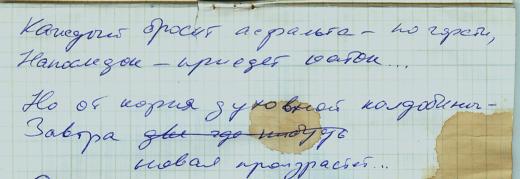 Каждый бросит асфальта – по горсти,
Напоследок – приедет каток...
Но от корня духовной колдобины –
Завтра где-нибудь
новая прорастёт...